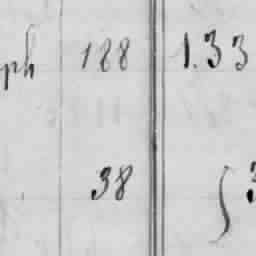 ph 188 1.33
38